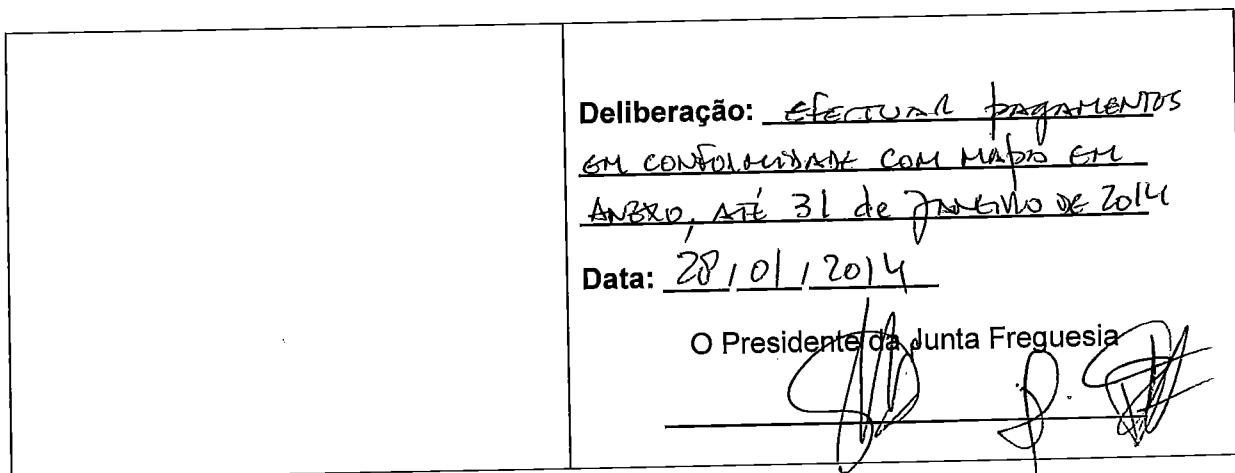 Deliberação: EFECTUAR PAGAMENTOS
EM CONFORMIDADE COM MAPA EM
ANEXO, ATÉ 31 de JANEIRO DE 2014
Data: 28 / 01 / 2014
O Presidente da Junta Freguesia